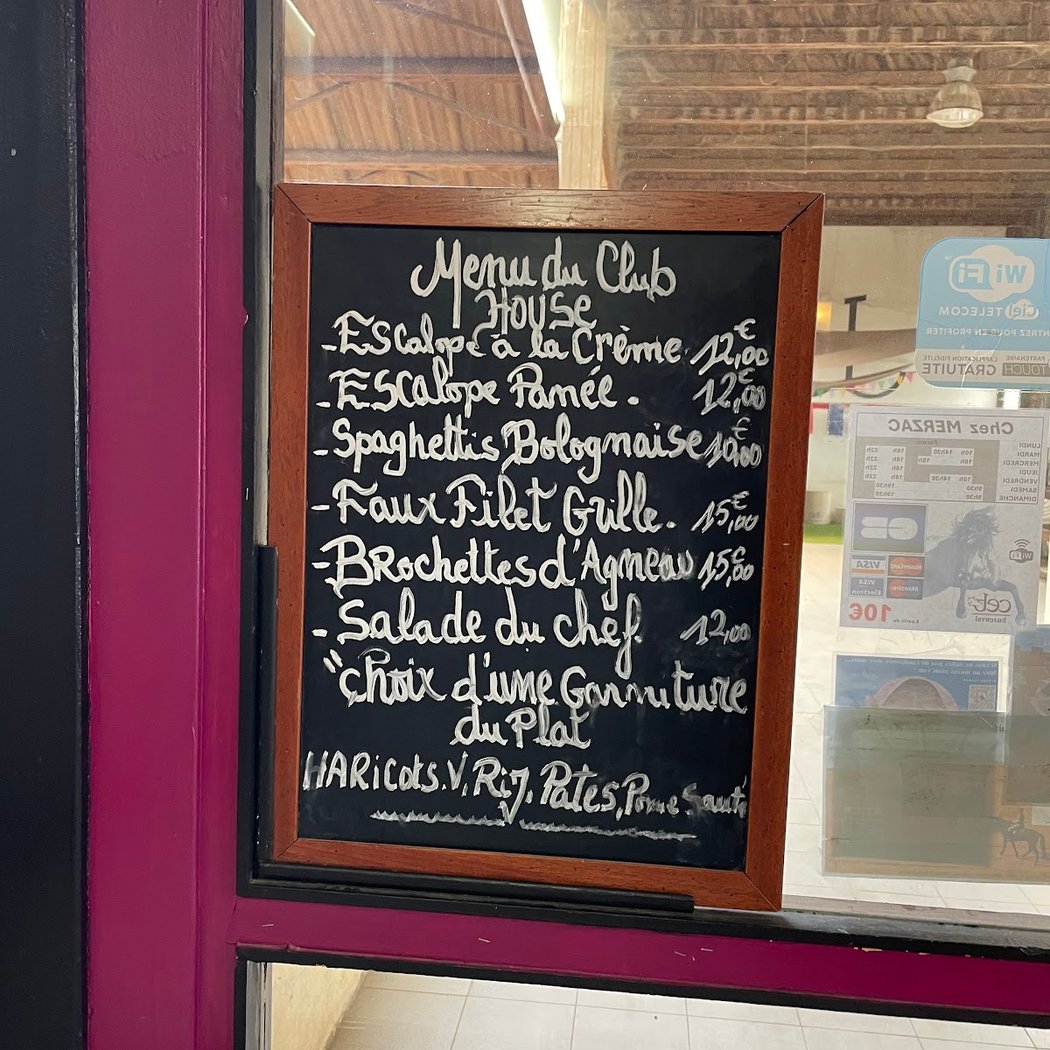 Menu du Club
House
- Escalope à la Crème. 12,00 €
- Escalope Panée. 12,00 €
- Spaghettis Bolognaise 10,00 €
- Faux Filet Grille. 15,00 €
- Brochettes d'Agneau 15,00 €
- Salade du chef. 12,00
"Choix d'une Garniture
du Plat
HARicots.V, Riz, Pates, Pome Sauté
WiFi
Ciel TELECOM
ENTREZ POUR EN PROFITER
PARTENAIRE
L'APPLICATION FIDELITE
TOUCH GRATUITE
Chez MERZAC
LUNDI
MARDI
MERCREDI
JEUDI
VENDREDI
SAMEDI
DIMANCHE
VISA MasterCard
VISA Electron Maestro
WiFi
cet
buzenval
A partir de 10€